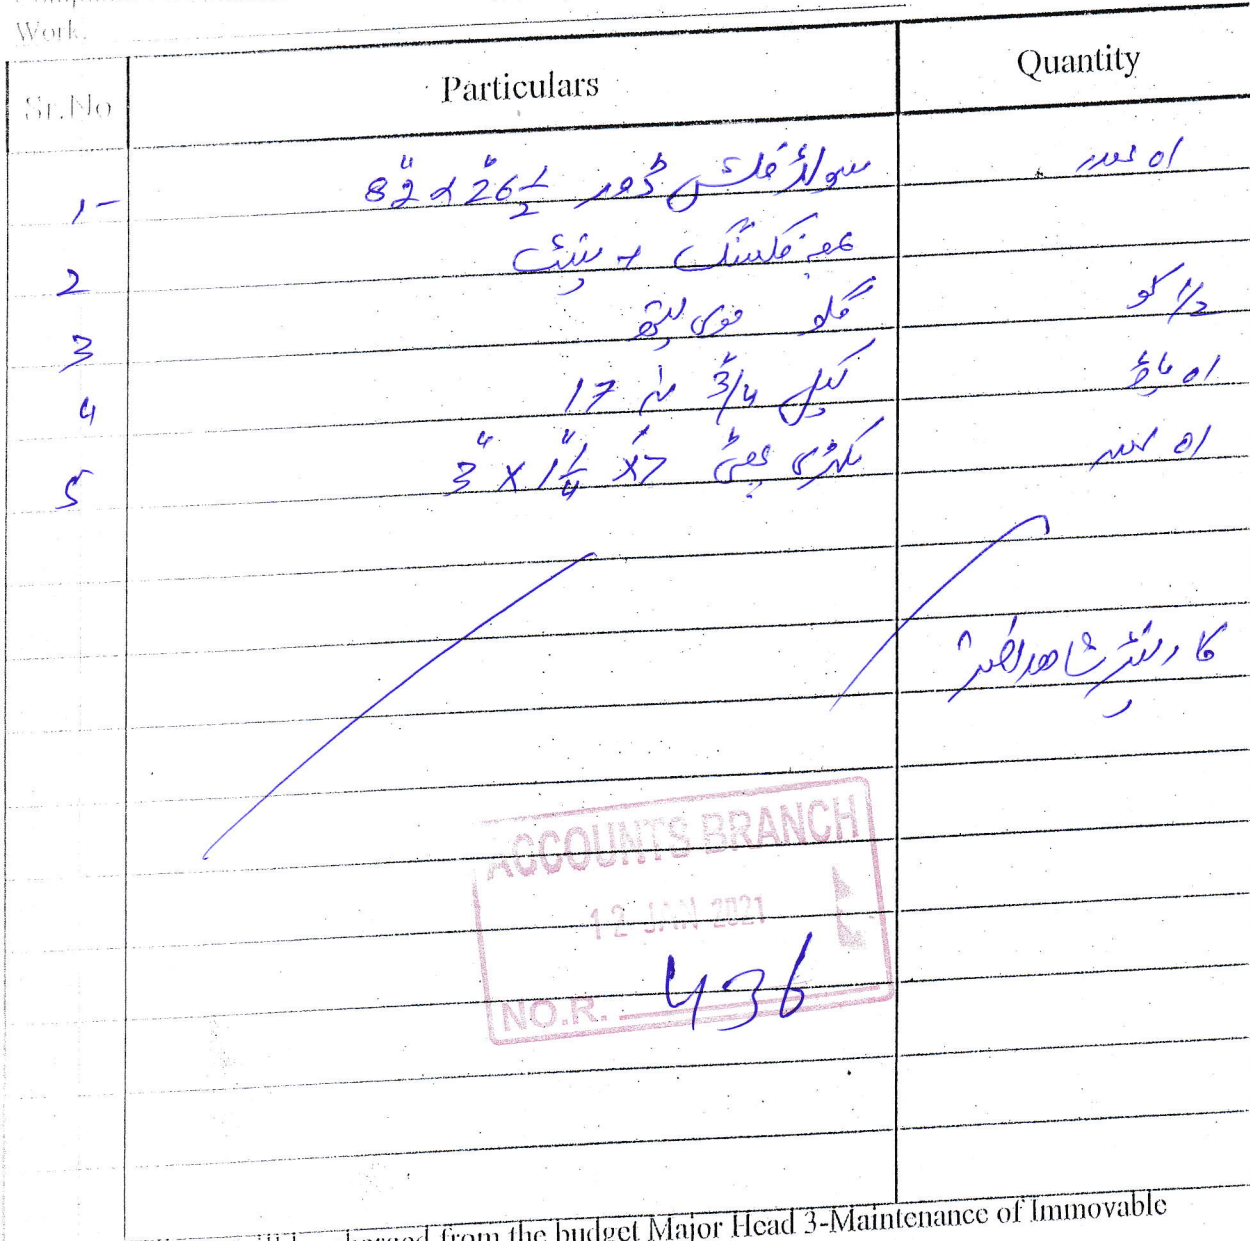 Work.
Sr.No Particulars Quantity
1- سولڈ فلش ڈور 26½" x 82" 01 عدد
2 بمعہ فکسنگ + پینٹ
3 گلو موی لیتھ 1/2 کلو
4 کیل 3/4" نمبر 17 01 پاؤ
5 لکڑی پھٹی 7' x 1¼" x 3" 01 عدد
کارپینٹر شاہد
ACCOUNTS BRANCH
12 JAN 2021
NO.R. 436
charged from the budget Major Head 3-Maintenance of Immovable